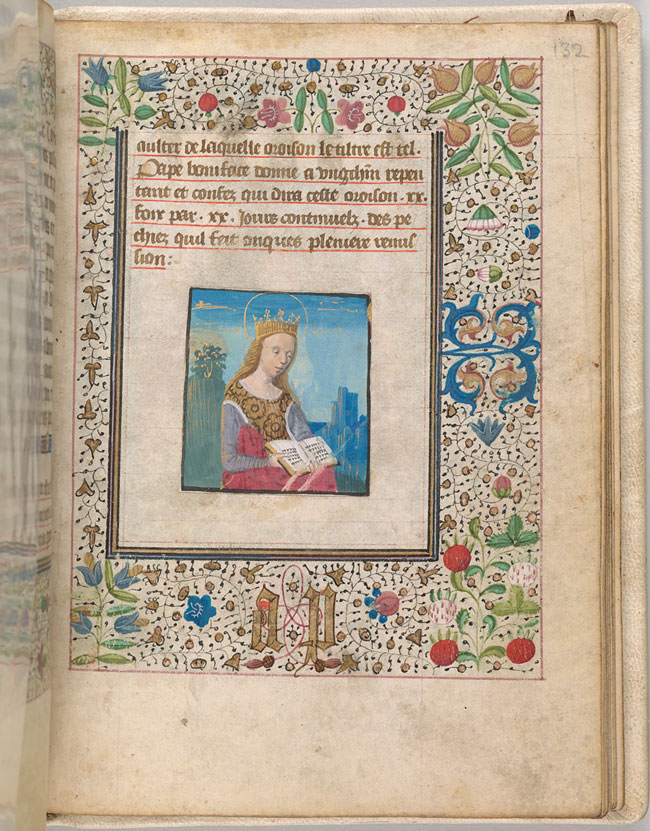 132
aulter de laquelle oroison le tiltre est tel.
Pape boniface donne a vng chm̃ repen
tant et confez qui dira ceste oroison .xx.
foix par .xx. Jours continuelz. des pe
chiez quil feit onques pleniere remis
sion: